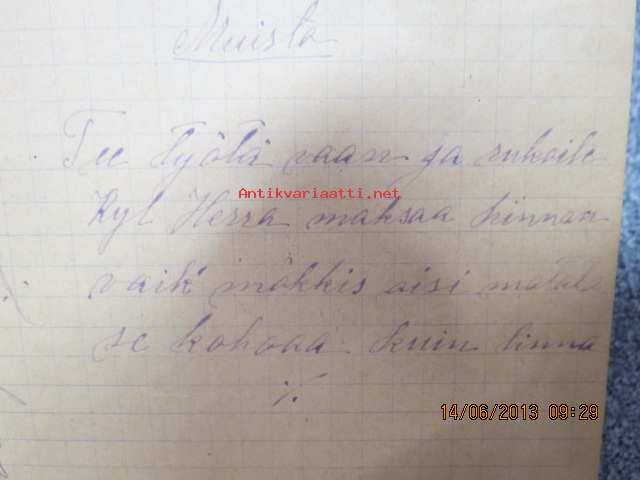 Muista
Tee työtä vaan ja rukoile
Antikvariaatti.net
Kyl Herra maksaa hinnan
vaik mökkis oisi matala
se kohoaa kuin linna
14/06/2013 09:29